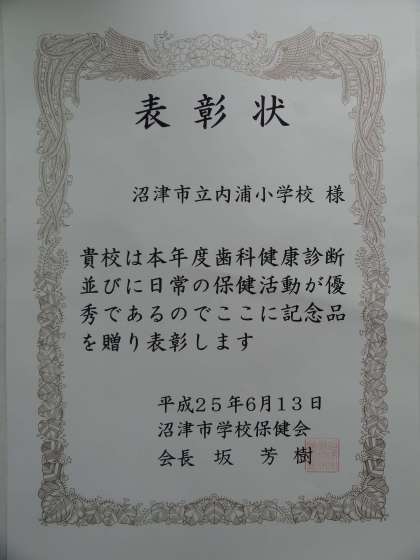 表彰状
沼津市立内浦小学校 様
貴校は本年度歯科健康診断
並びに日常の保健活動が優
秀であるのでここに記念品
を贈り表彰します
平成25年6月13日
沼津市学校保健会
会長 坂 芳樹